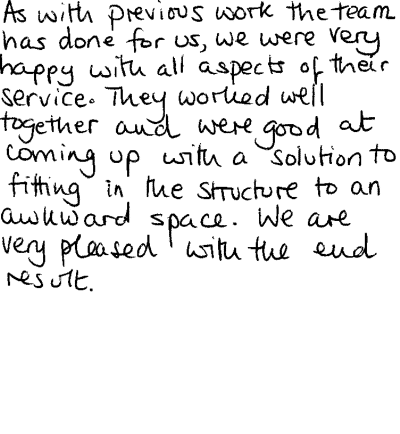 As with previous work the team
has done for us, we were very
happy with all aspects of their
service. They worked well
together and were good at
coming up with a solution to
fitting in the structure to an
awkward space. We are
very pleased with the end
result.